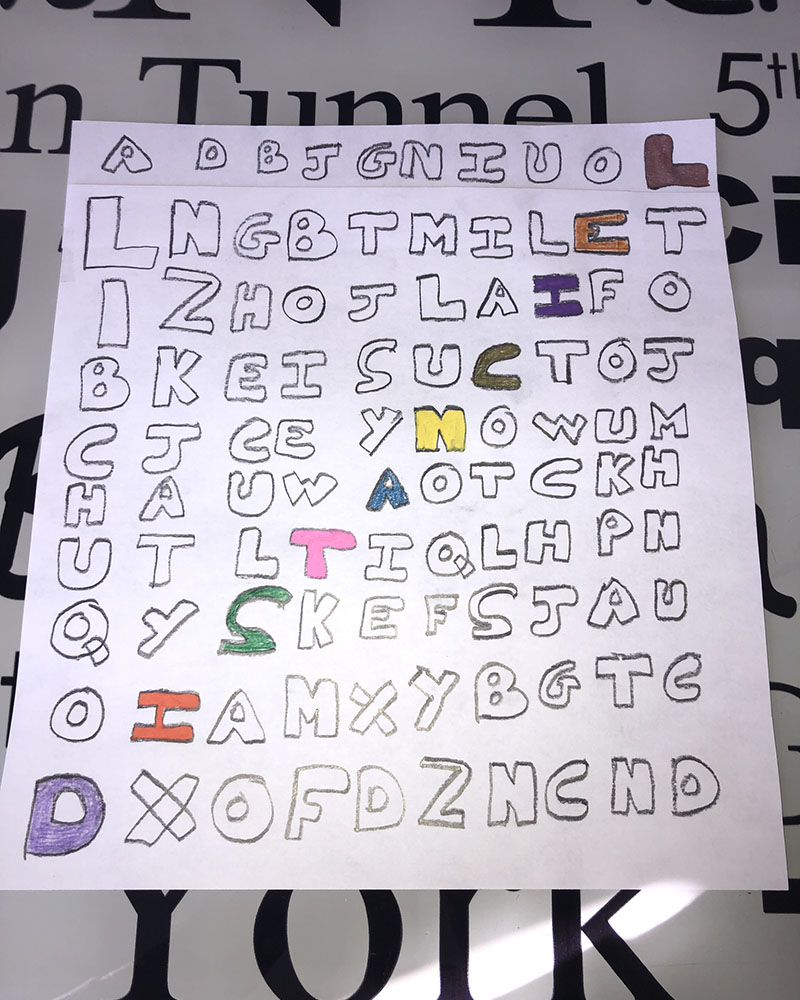 n Tunnel 5th
A D B J G N I U O L
L N G B T M I L E T
I Z H O J L A I F O
B K E I S U C T O J
C J C E Y N O W U M
H A U W A O T C K H
U T L T I Q L H P N
Q Y S K E F S J A U
O I A M X Y B G T C
D X O F D Z N C N D
York